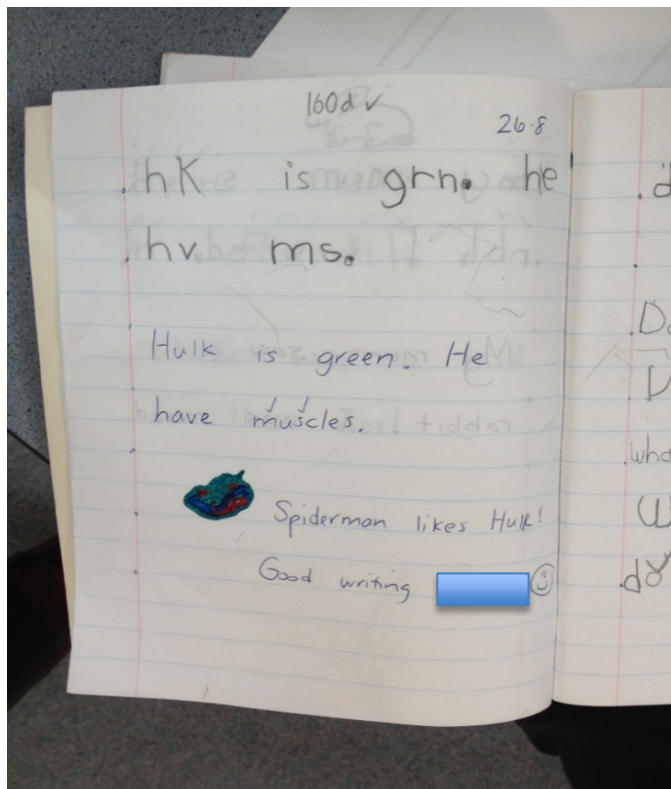 160d ✓
26.8
hK is grn. he
hv ms.
Hulk is green. He
have muscles.
Spiderman likes Hulk!
Good writing